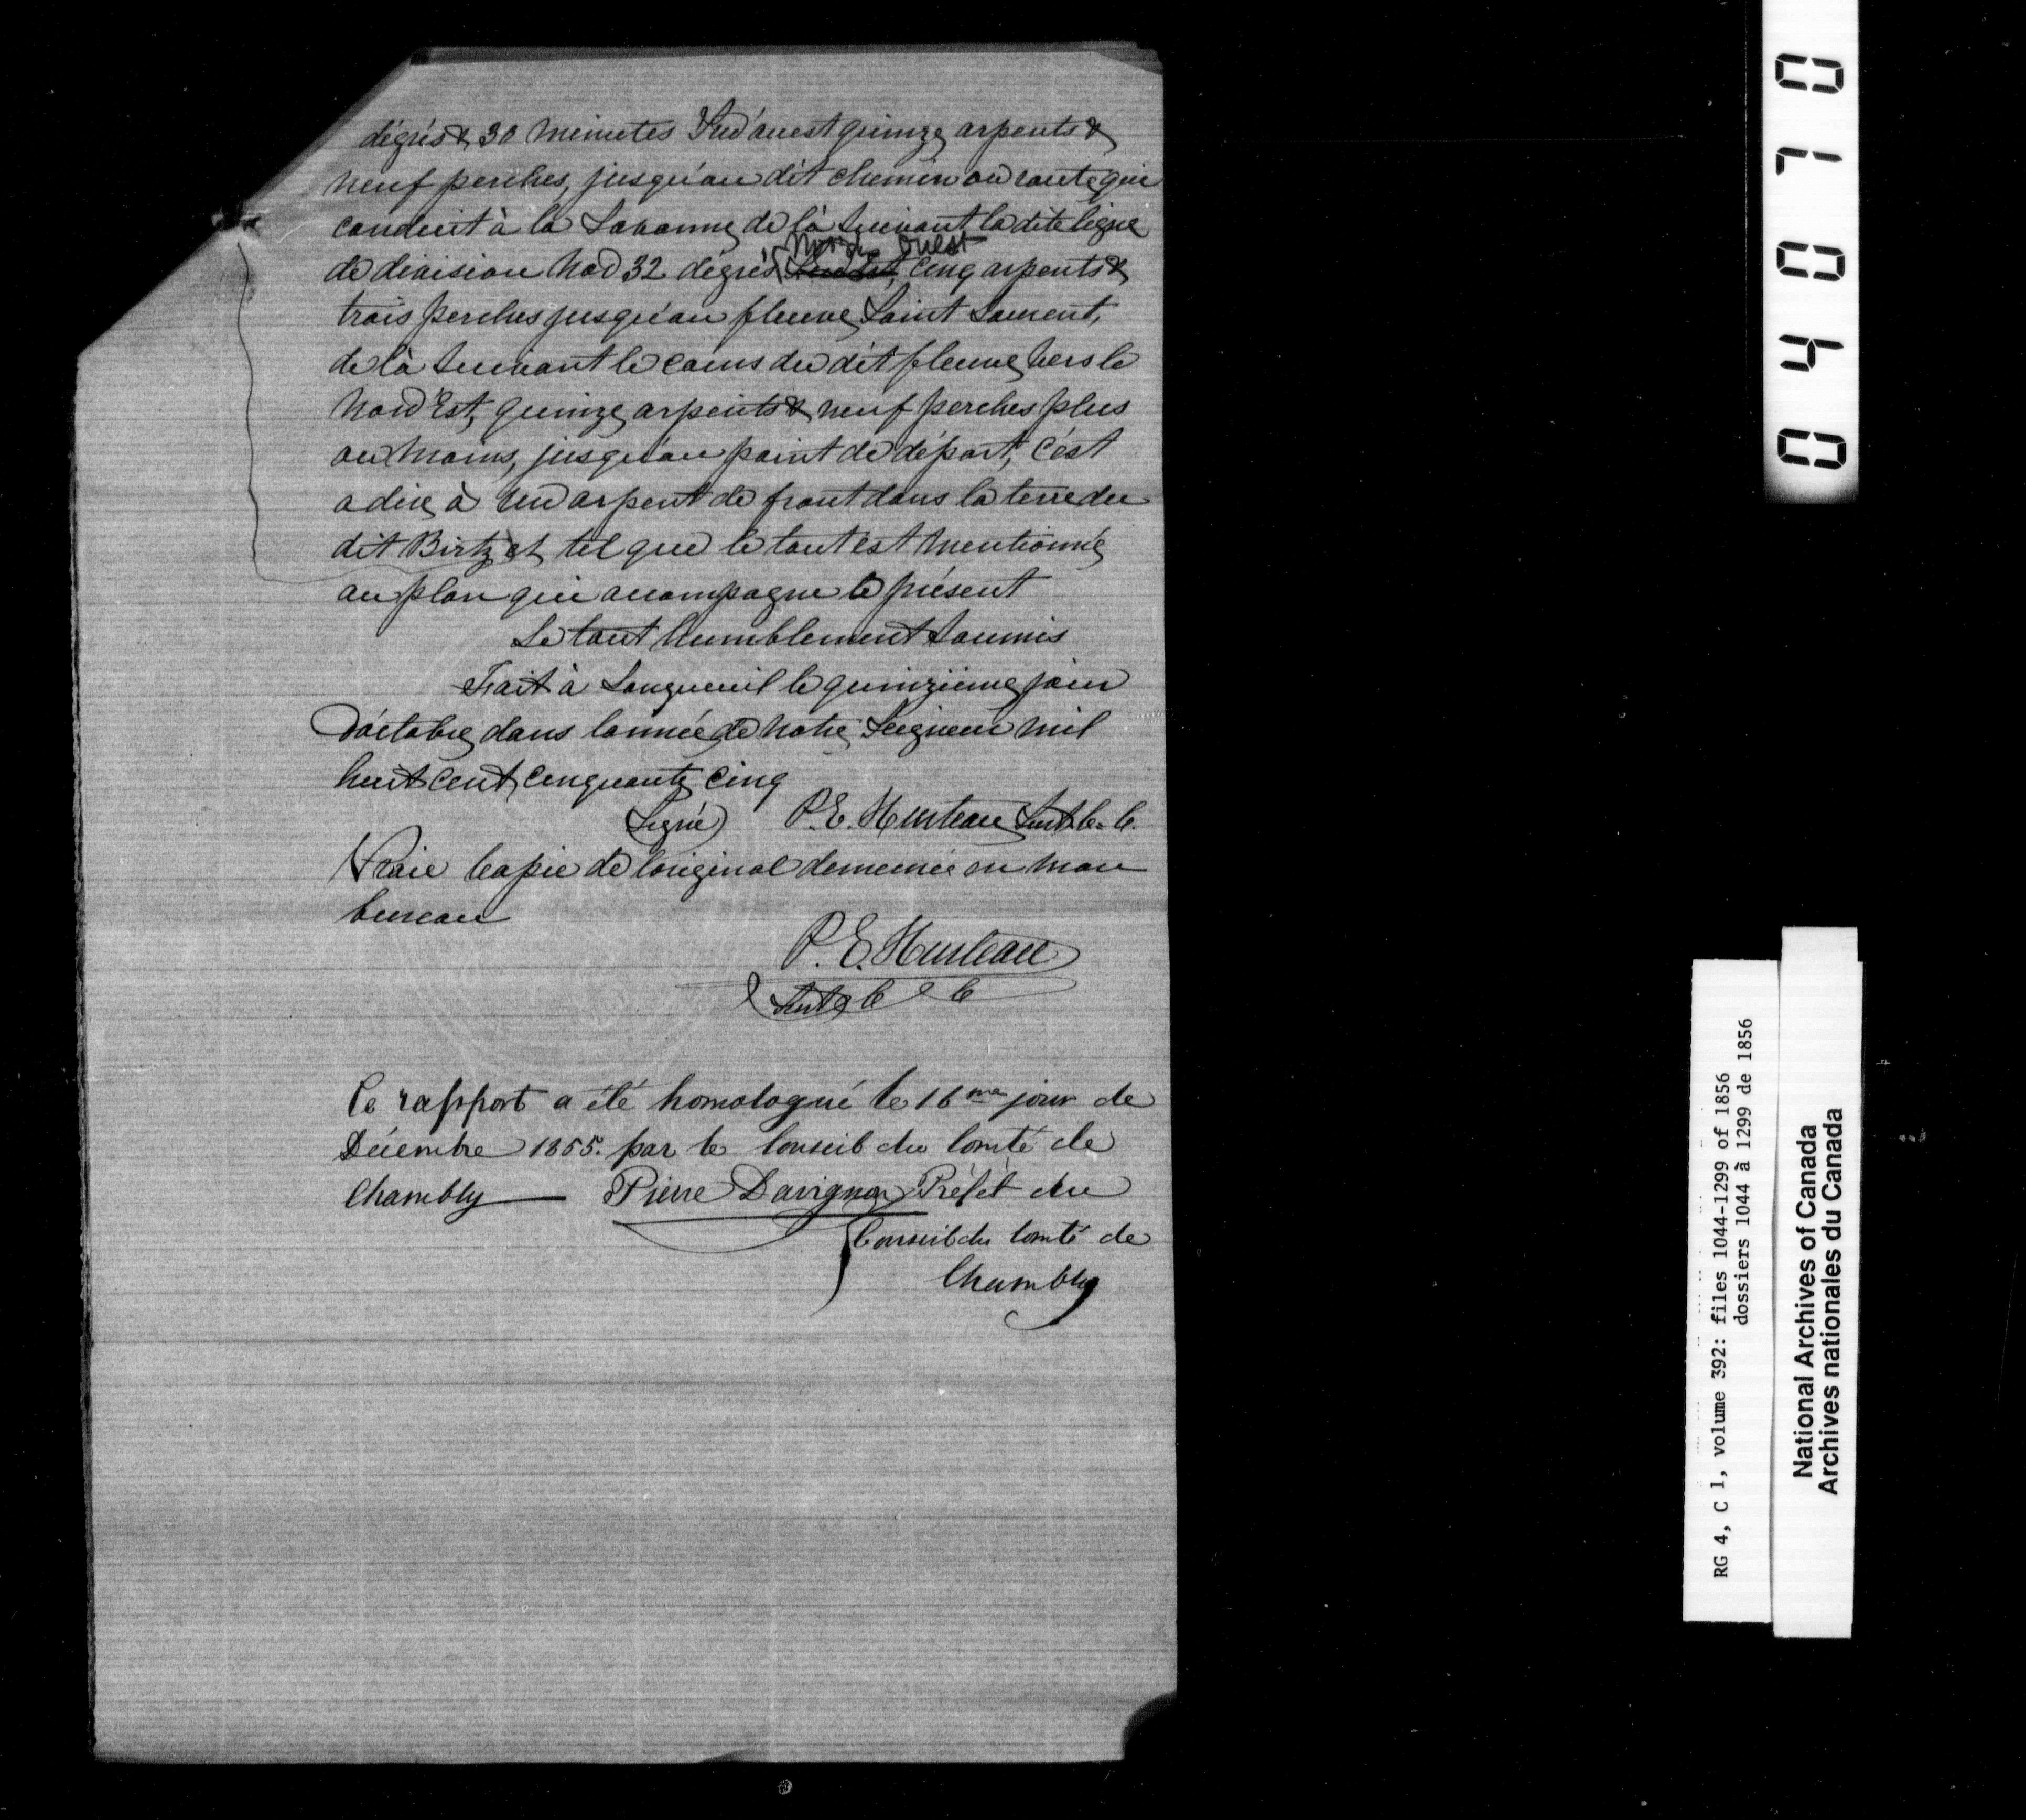 dégrés & 30 minutes Sud'ouest quinze arpents &
neuf perches, jusqu'au dit chemin ou route qui
conduit à la Savanne, de là suivant la dite ligne
de division Nod 32 dégrés Nord Ouest cinq arpents &
trois perches jusqu'au fleuve Saint Laurent,
de là suivant le cours du dit fleuve, vers le
Nord'Est, quinze arpents & neuf perches plus
ou moins, jusqu'au point de départ, c'est
a dire, à un arpent de front dans la terre du
dit Birtz, et tel que le tout est mentionné
au plan qui accompagne le présent
Le tout humblement soumis
Fait à Longueuil le quinzième jour
d'octobre, dans l'année de notre Seigneur mil
huit cent cinquante cinq
(Signé) P. E. Hurteau Surt. b. c.
Vraie Copie de l'original demeurée en mon
bureau
P. E. Hurteau
Ce rapport a été homologué le 16me jour de
Décembre 1855. par le Conseil du Comté de
Chambly — Pierre Davignon Préfet du
Conseil du Comté de
Chambly
04070
RG 4, C 1, volume 392: files 1044-1299 of 1856
dossiers 1044 à 1299 de 1856
National Archives of Canada
Archives nationales du Canada